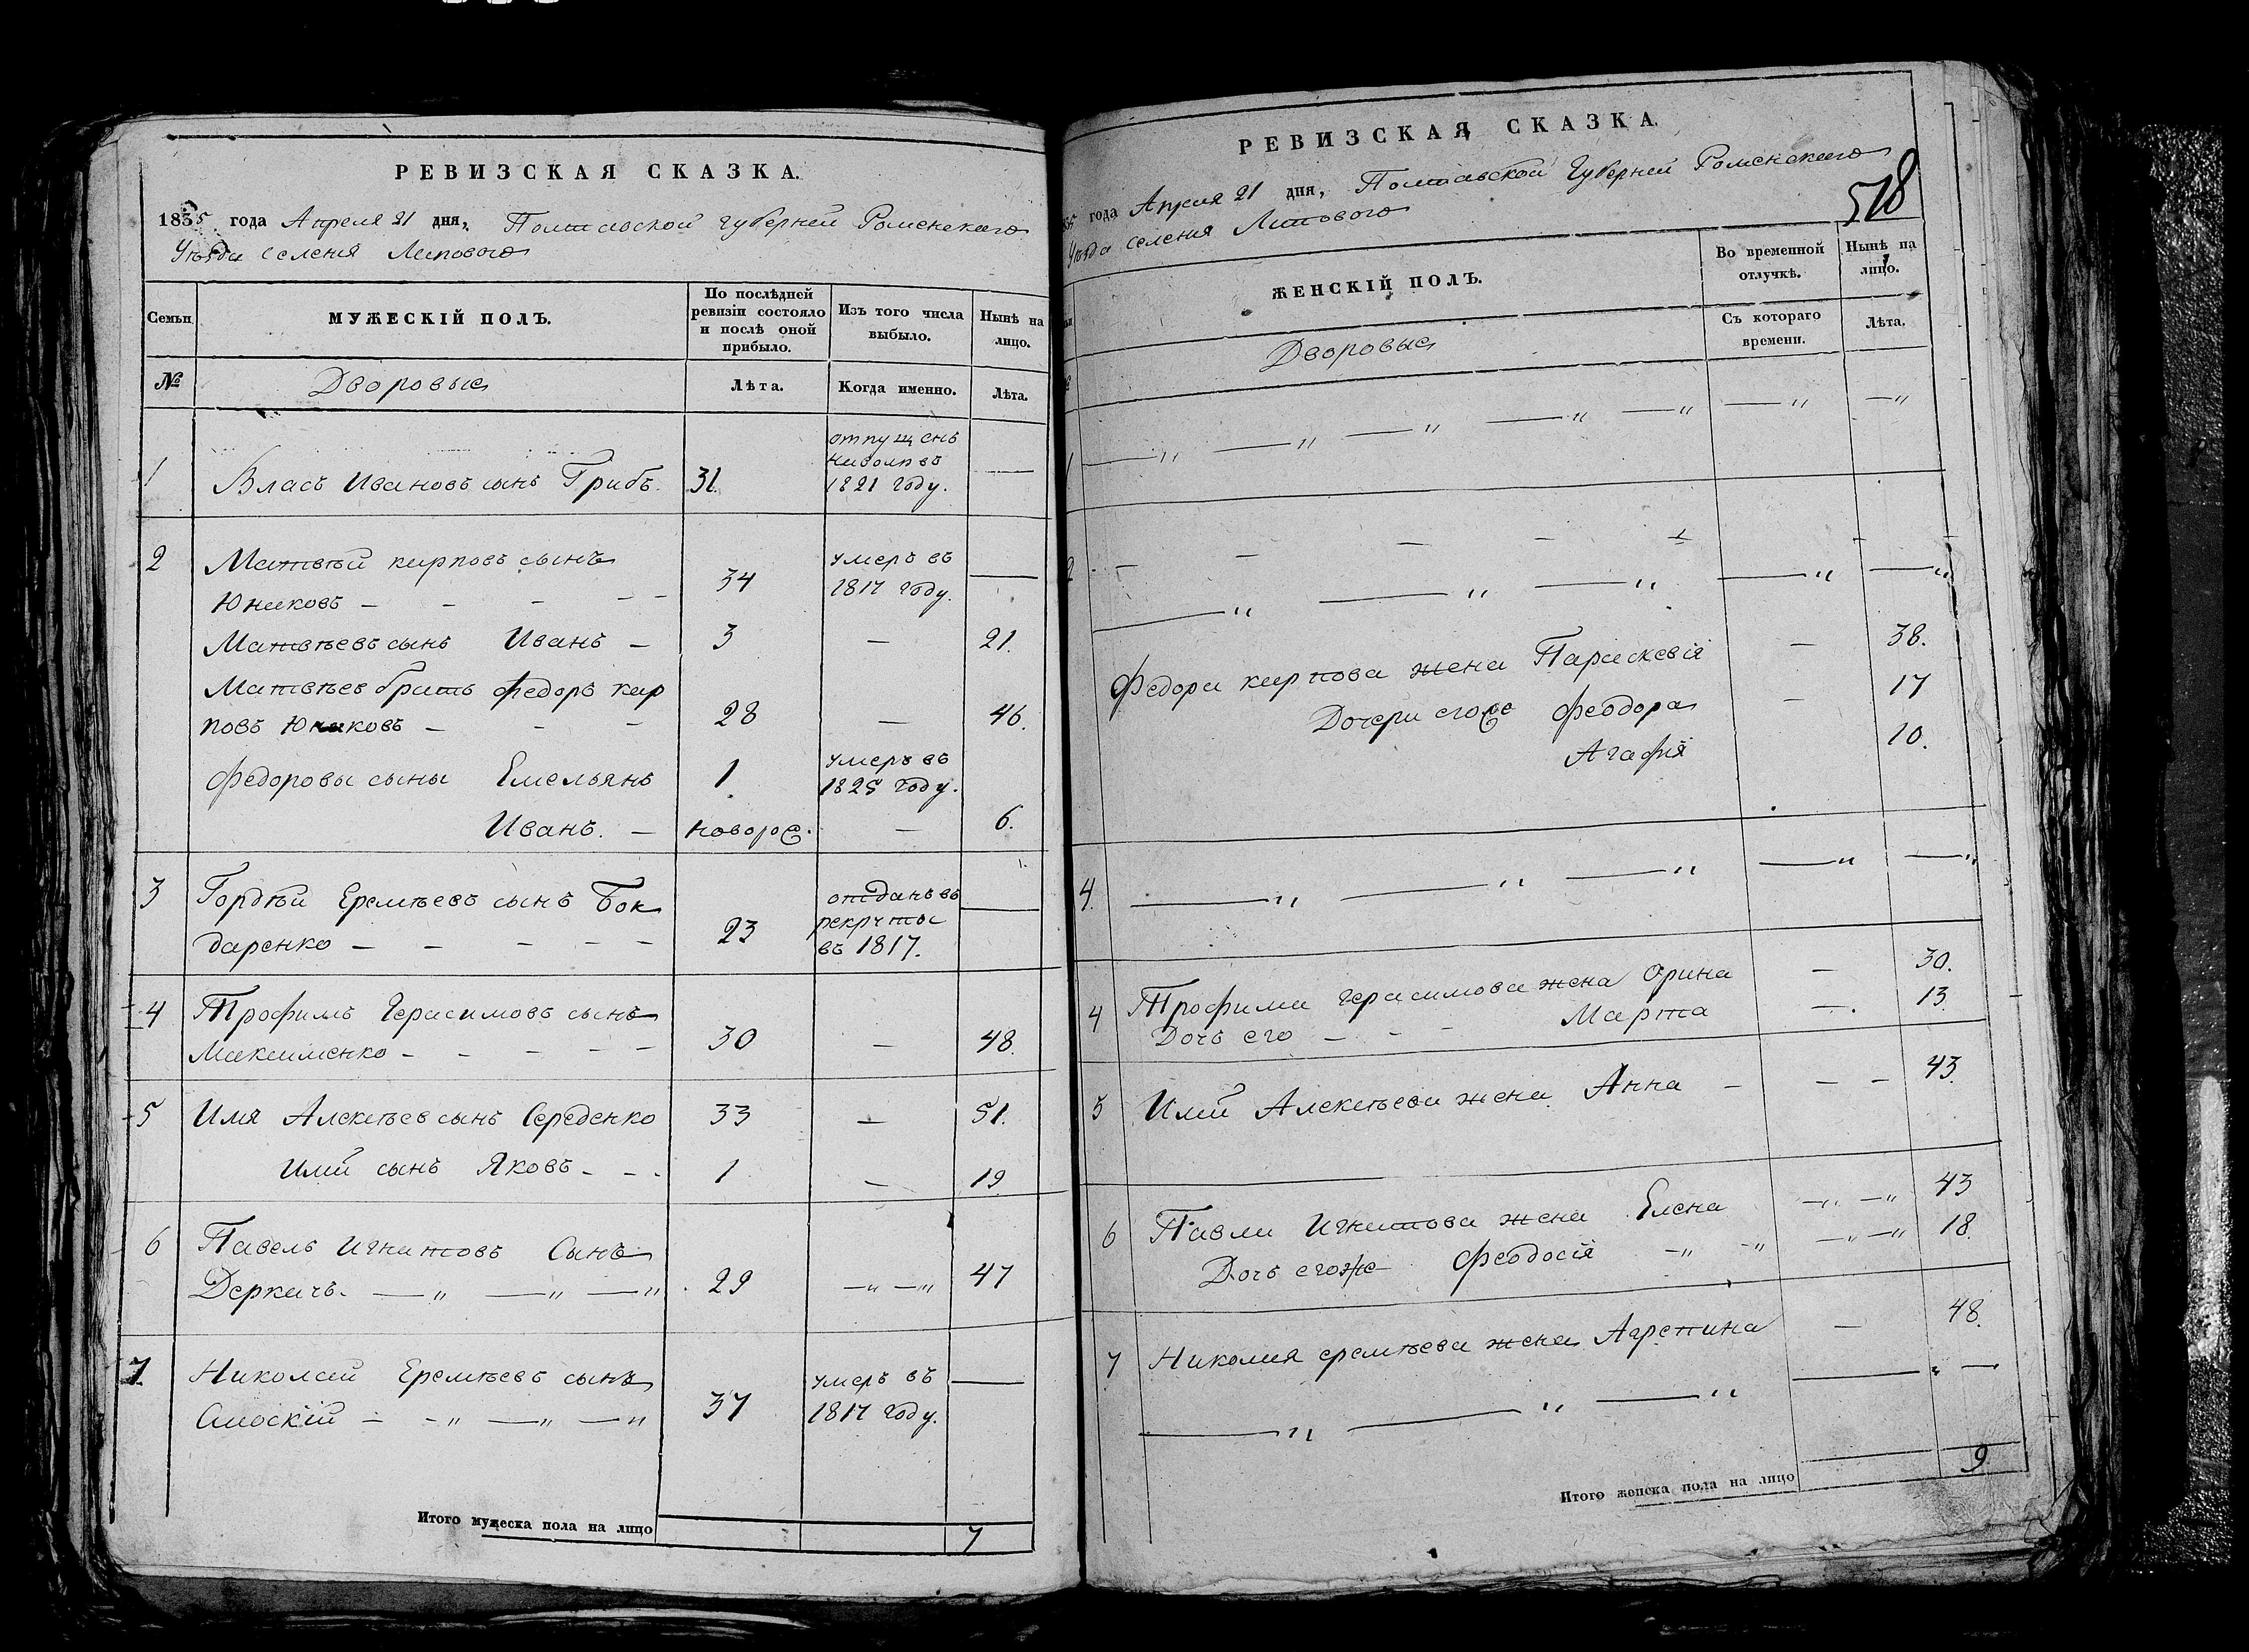 РЕВИЗСКАЯ СКАЗКА.
1835 года Апреля 21 дня, Полтавской губерней Роменскаго
Уѣзда селения Липового
Семьи МУЖЕСКІЙ ПОЛЪ. По послѣдней ревизіи состояло и послѣ оной прибыло. Изъ того числа выбыло. Нынѣ на лицо.
№ Дворовые Лѣта. Когда именно. Лѣта.
отпущенъ
1 Власъ Ивановъ сынъ Грибъ. 31. 1821 году. —
2 Матвѣй карповъ сынъ умеръ въ
Юнаковъ — 34 1817 году. —
Матвѣевъ сынъ Иванъ — 3 — 21.
Матвѣев братъ федоръ кар
повъ Юнаковъ — 28 — 46.
федоровы сыны Емельянъ 1 умеръ въ 1825 году.
Иванъ. — новорож. — 6.
3 Гордѣй Еремѣевъ сынъ Бон отданъ въ
даренко — 23 рекруты —
въ 1817.
4 Трофимъ Герасимовъ сынъ
Максименко — 30 — 48.
5 Имя Алексѣев сынъ Середенко 33 — 51.
Имя сынъ Яковъ 1 — 19
6 Павелъ Игнатовъ Сынъ
Деркачъ. — 29 — 47
7 Николай Еремѣевъ сынъ умеръ въ
37 1817 году. —
Итого мужеска пола на лицо 7
РЕВИЗСКАЯ СКАЗКА.
1835 года Апреля 21 дня, Полтавской Губерней Роменскаго
Уѣзда селения Липового
518
ЖЕНСКІЙ ПОЛЪ. Во временной отлучкѣ. Нынѣ на лицо.
Дворовые Съ котораго времени. Лѣта.
1
2
Федора карпова жена Параскевія — 38.
Дочери егоже Феодора — 17
Агафія 10.
4.
4 Трофима Герасимова жена Орина — 30.
Дочь его — Марта — 13.
5 Алексѣева жена Анна — 43.
6 Павла Игнатова жена Елена 43
Дочь егоже Феодосія 18.
7 Николая еремѣева жена Агрепина — 48.
Итого женска пола на лицо 9